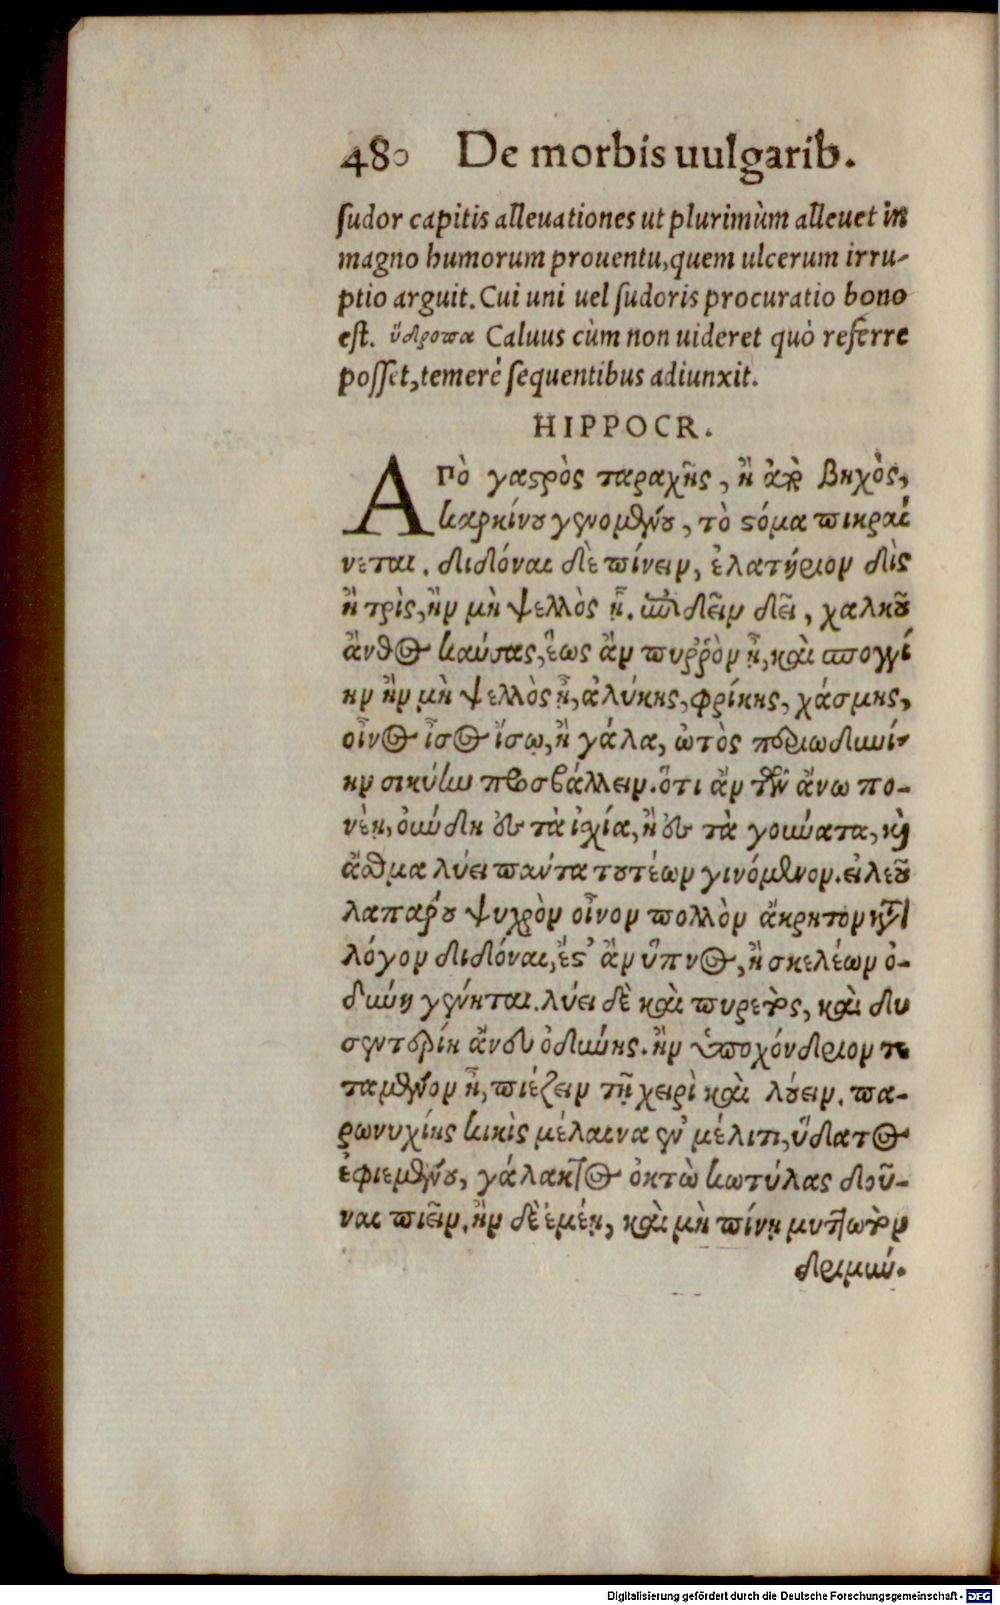 480 De morbis uulgarib.
sudor capitis alleuationes ut plurimùm alleuet in
magno humorum prouentu, quem ulcerum irru-
ptio arguit. Cui uni uel sudoris procuratio bono
est. ὕδρωπα Caluus cùm non uideret quò referre
posset, temerè sequentibus adiunxit.
HIPPOCR.
ΑΠὸ γαστρὸς ταραχῆς, ἢ ἀπὸ βηχὸς,
καρκίνου γενομένου, τὸ στόμα πικραί
νεται. διδόναι δὲ πίνειν, ἐλατήριον δὶς
ἢ τρὶς, ἢν μὴ ψελλὸς ᾖ. δεῖν δεῖ, χαλκοῦ
ἄνθος καύσας, ἕως ἂν πυῤῥὸν ᾖ, καὶ σπογγί
ην ἢν μὴ ψελλὸς ᾖ, ἀλύκης, φρίκης, χάσμης,
οἶνος ἶσος ἴσῳ, ἢ γάλα, ὠτὸς περιωδυνί-
ην σικύην προσβάλλειν. ὅτι ἂν τῶν ἄνω πο-
νέῃ, ὀδύνη ἐς τὰ ἰχία, ἢ ἐς τὰ γούνατα, καὶ
ἄσθμα λύει πάντα τουτέων γινόμενον. εἰλεοῦ
λαπαρὸν ψυχρὸν οἶνον πολλὸν ἄκρητον κατὰ
λόγον διδόναι, ἔστ' ἂν ὕπνος, ἢ σκελέων ὀ-
δύνη γένηται. λύει δὲ καὶ πυρετὸς, καὶ δυ
σεντερίη ἄνευ ὀδύνης. ἢν ὑποχόνδριον τε
ταμένον ᾖ, πιέζειν τῇ χειρὶ καὶ λούειν. πα-
ρωνυχίης κικὶς μέλαινα ἐν μέλιτι, ὕδατος
ἐφιεμένου, γάλακτος ὀκτὼ κωτύλας δοῦ-
ναι πιεῖν. ἢν δὲ ἐμέῃ, καὶ μὴ πίνῃ μυττωτὸν
δριμύν.
Digitalisierung gefördert durch die Deutsche Forschungsgemeinschaft - DFG